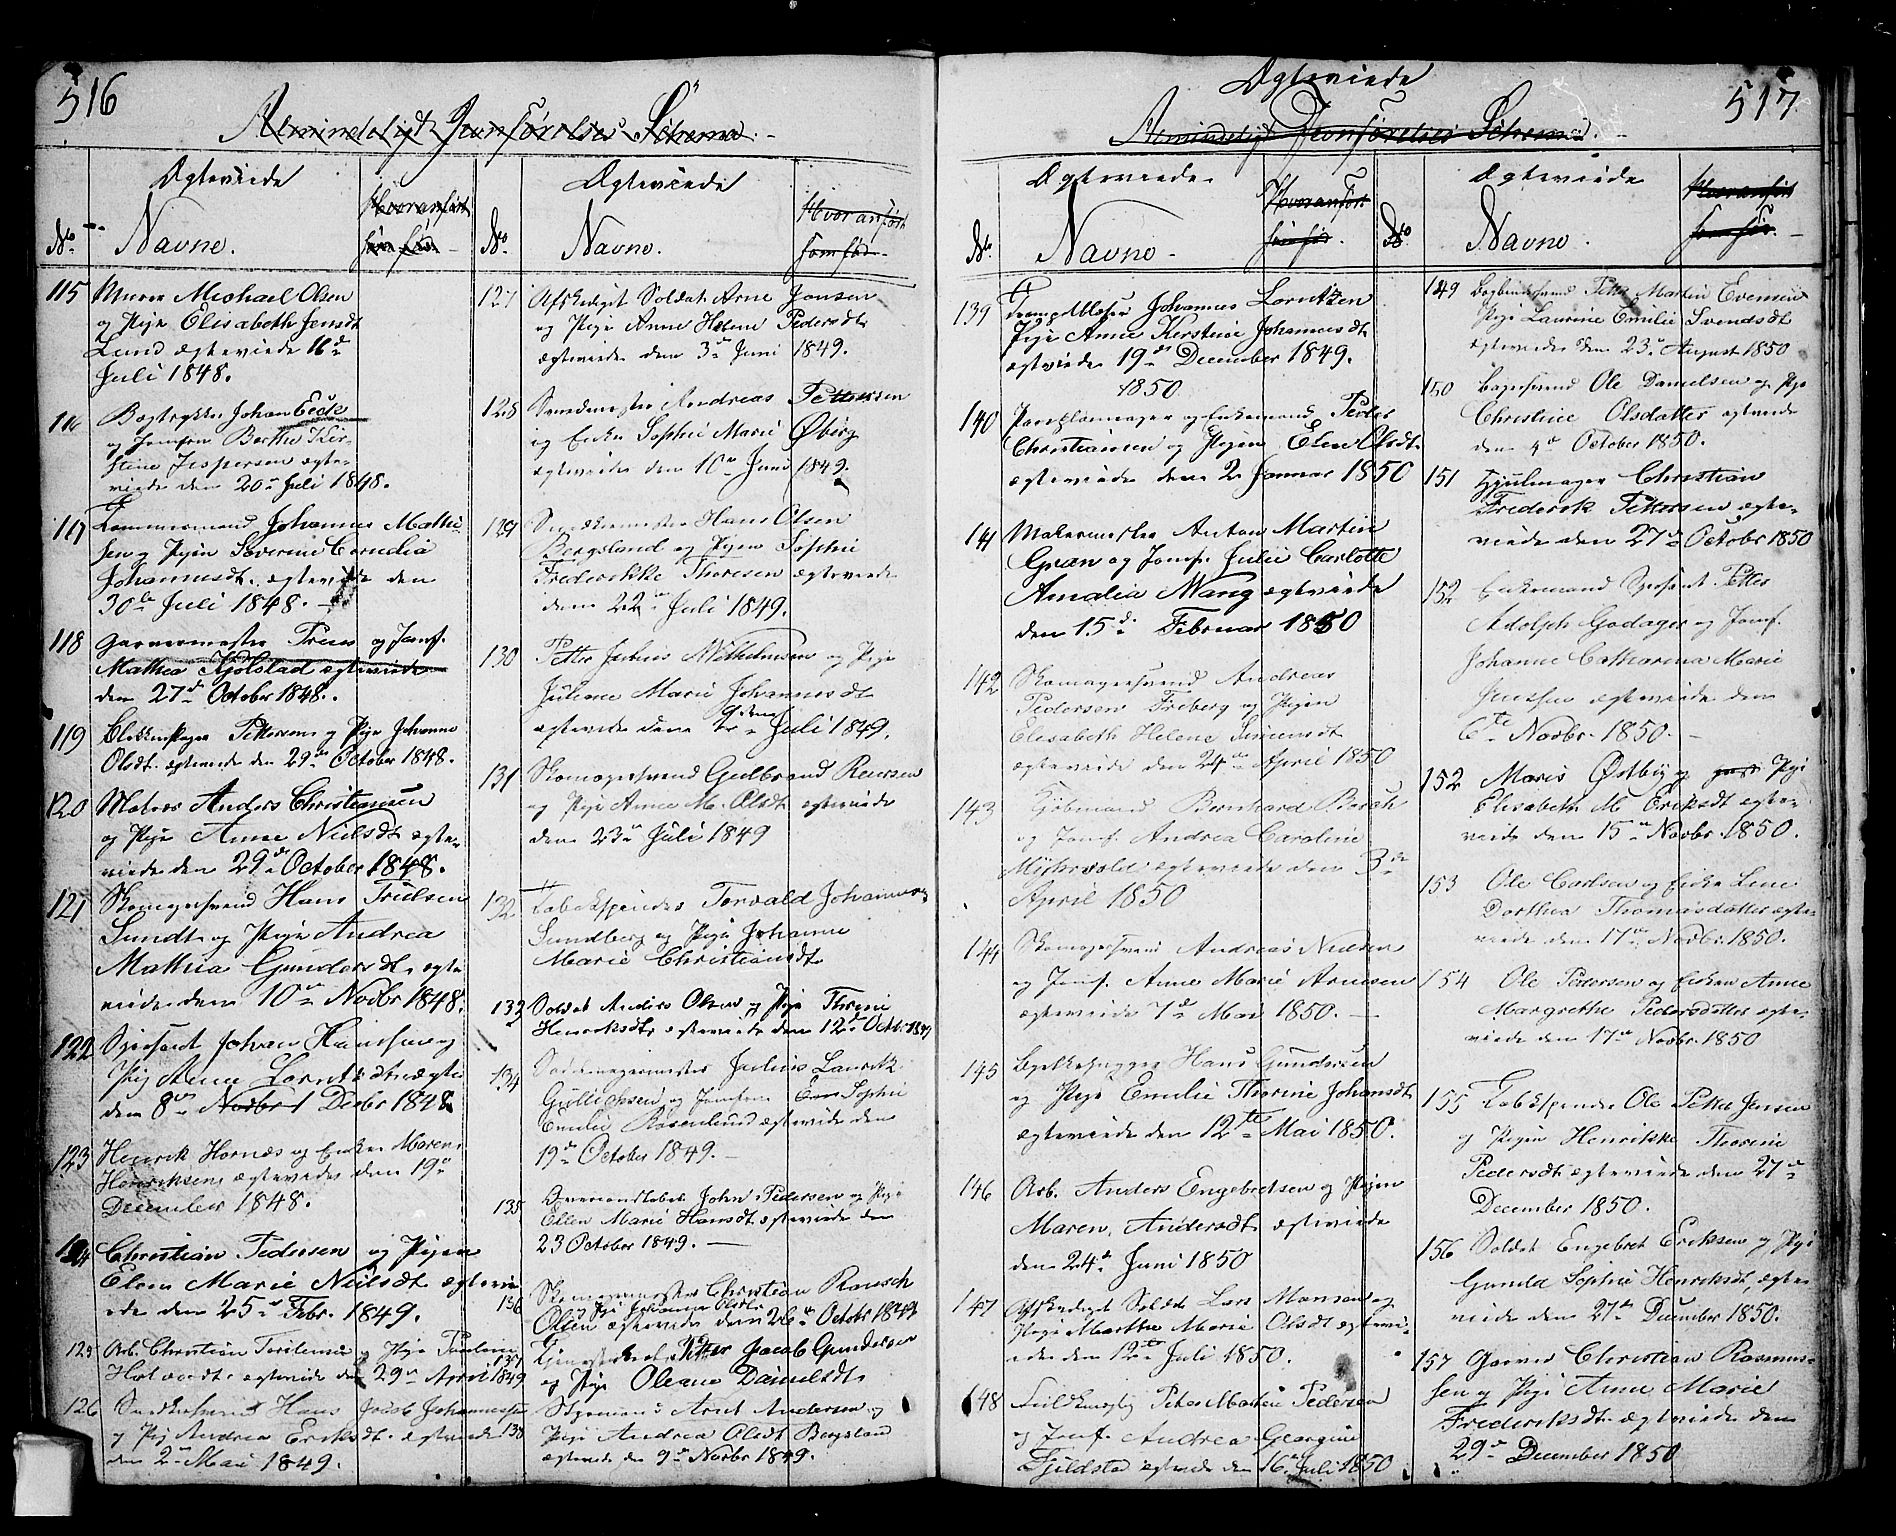 516
Almindeligt Jevnførelses Schema.
Ægteviede
Hvor anført
No
Navne.
som før
115 Murer Michael Olsen
og Pige Elisabeth Jensdt
Lund ægteviede 16de
Juli 1848.
116 Bogtrykker Johan Eeck
og Jomfru Berthe Kir-
stine Jespersen ægte-
viede den 20de Juli 1848.
117 Tømmermand Johannes Mathi-
sen og Pigen Severine Cornelia
Johannesdt. ægteviede den
30te Juli 1848.
118 Garvermester Truls og Jomf.
Mathea Kjølstad ægteviede
den 27de October 1848.
119 Blikkenslager Pettersen og Pige Johanne
Olsdt. ægteviede den 29de October 1848.
120 Matros Anders Christiansen
og Pige Anne Nielsdt ægte-
viede den 29de October 1848.
121 Skomagersvend Hans Trulsen
Sundt og Pige Andrea
Mathia Gundersdt. ægte
viede den 10de Novbr 1848.
122 Sersjant Johan Hansen og
Pige Anne Lorntzdtr ægte
den 8de Novbr 1 Decbr 1848
123 Henrik Hornæs og Enke Maren
Henriksen, ægteviede den 19de
December 1848.
124 Christian Pedersen og Pigen
Elen Marie Nielsdt ægtevie
ede den 25de Febr. 1849.
125 Arb. Christian Torstensen og Pige Pauline
Halvordt. ægteviede den 29de April 1849
126 Snedkersvend Hans Jacob Johannesen
og Pige Andrea Eriksdt. ægteviede
den 2den Mai 1849.
Ægteviede
Hvor anført
No
Navne.
som før
127 Afskediget Soldat Arne Jonsen
og Pige Anne Helene Pedersdt.
ægteviede den 3de Juni 1849.
128 Smedmester Andreas Pettersen
og Enke Sophie Marie Øberg
ægteviede den 10de Juni 1849.
129 Snedkermester Hans Olsen
Bergsland og Pigen Sophie
Frederikke Thoresen ægteviede
den 22de Juli 1849.
130 Petter Julius Wilhelmsen og Pige
Juliane Marie Johannesdt
ægteviede den Juli 1849.
131 Skomagersvend Gulbrand Reiersen
og Pige Anne M. Olsdt. ægteviede
den 23de Juli 1849
132 Tobakspinder Torvald Johannes
Sundberg og Pige Johanne
Marie Christiansdt
133 Soldat Anders Olsen og Pige Thrine
Henriksdt. ægteviede den 12de Octbr 1849
134 Sadelmagermester Julius Lauritz
Gullichsen og Jomfru Sophie
Emilie Rosenlund ægteviede den
19de October 1849.
135 John Pedersen og Pige
Ellen Marie Hansdt ægteviede den
23 October 1849.
136 Skomagermester Christian Rausch
Olsen og Pige Johanne Olsdtr ægteviede den 26de Octobr 1849
137 Tjenestekarl Petter Jacob Gundersen
og Pige Oleane Danielsdt.
138 Styrmand Arnt Andersen og
Pige Andrea Olsdt Bergsland
ægteviede den 9de Novbr 1849.
517
Ægteviede
Almindeligt Jevnførelses Schema.
Ægteviede
Hvor anført
No
Navne.
som før
139 Johannes Lorntzen
Pige Anne Kerstine Johannesdt
ægteviede 19de December 1849.
1850
140 Paraplymager og Enkemand Peder
Christiansen og Pigen Elen Olsdt.
ægteviede den 2 Januar 1850
141 Malermester Anton Martin
Gran og Jomf. Julie Carlotte
Amalia Mang ægteviede
den 15de Februar 1850
142 Skomagersvend Andreas
Pedersen Friberg og Pigen
Elisabeth Helene Simensdt
ægteviede den 24de April 1850
143 Kjøbmand Bernhard Borch
og Jomf. Andrea Caroline
ægteviede den 3de
April 1850
144 Skomagersvend Andreas Nielsen
og Jomf. Anne Marie Arnesen
ægteviede 7de Mai 1850.
145 Blokkehugger Hans Gundersen
og Pige Emilie Thorine Johansdt
ægteviede den 12te Mai 1850.
146 Arb. Anders Engebretsen og Pigen
Maren Andersdt ægteviede
den 24de Juni 1850
147 Afskediget Soldat Lars Monsen og
Pige Marthe Marie Olsdt ægtevi-
ede den 12te Juli 1850.
148 Peter Martin Pedersen
og Jomf. Andrea Georgine
Fjeldstad ægteviede den 16de Juli 1850
Ægteviede
Hvor anført
No
Navne.
som før.
149 Bogbindersvend Peter Martin Evensen
Pige Laurine Emilie Svendsdt
ægteviede den 23de August 1850
150 Bagersvend Ole Danielsen og Pige
Christine Olsdatter ægteviede
den 4de October 1850.
151 Hjulmager Christian
Frederik Pettersen ægte-
viede den 27de Octobr 1850
152 Enkemand Sersjant Petter
Adolph Godager og Jomf.
Johanne Catharina Marie
Jensen ægteviede den
6te Novbr. 1850.
152 Maris Østby og Pige
Elisabeth M Eriksdt ægte-
viede den 15de Novbr. 1850.
153 Ole Carlsen og Enke Lene
Dorthea Thomasdatter ægte-
viede den 17de Novbr. 1850.
154 Ole Pedersen og Enken Anne
Margrethe Pedersdatter ægte-
viede den 17de Novbr. 1850
155 Tobakspinder Ole Petter Jensen
og Pigen Henrikke Thorine
Pedersdt. ægteviede den 27de
December 1850.
156 Soldat Engebret Eriksen og Pige
Gunild Sophie Henriksdt, ægte-
viede den 27de December 1850.
157 Garver Christian Rasmus-
sen og Pige Anne Marie
Frederiksdt. ægteviede den
29de December 1850